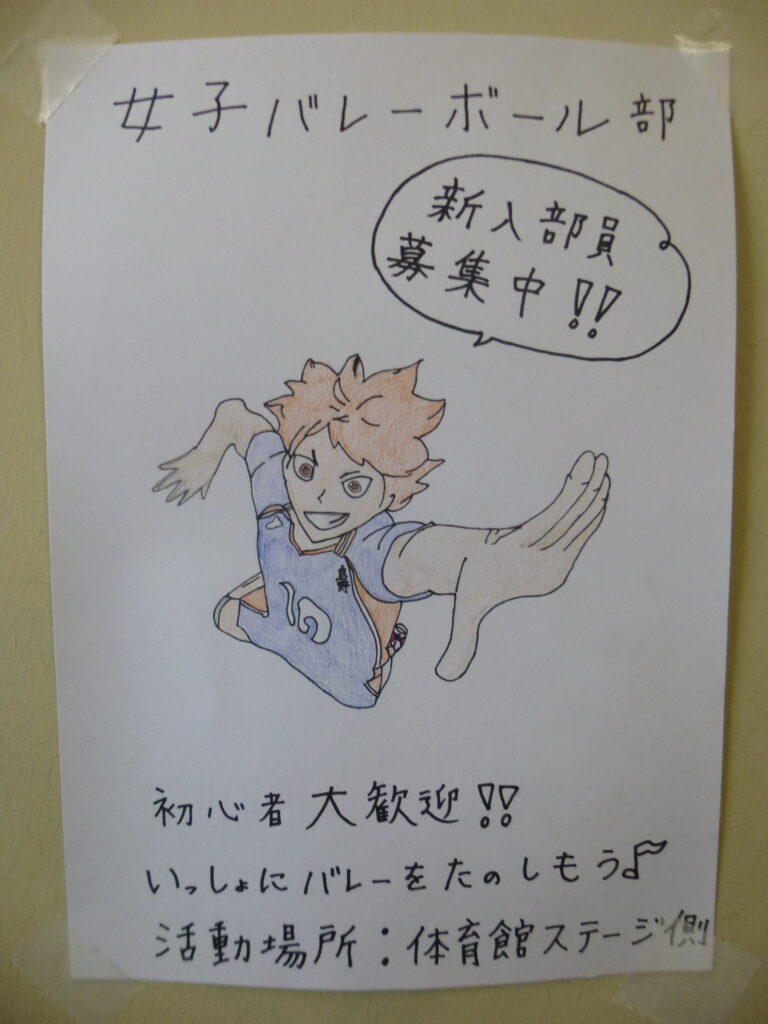 女子バレーボール部
新入部員
募集中!!
烏野
10
初心者大歓迎!!
いっしょにバレーをたのしもう♪
活動場所:体育館ステージ側